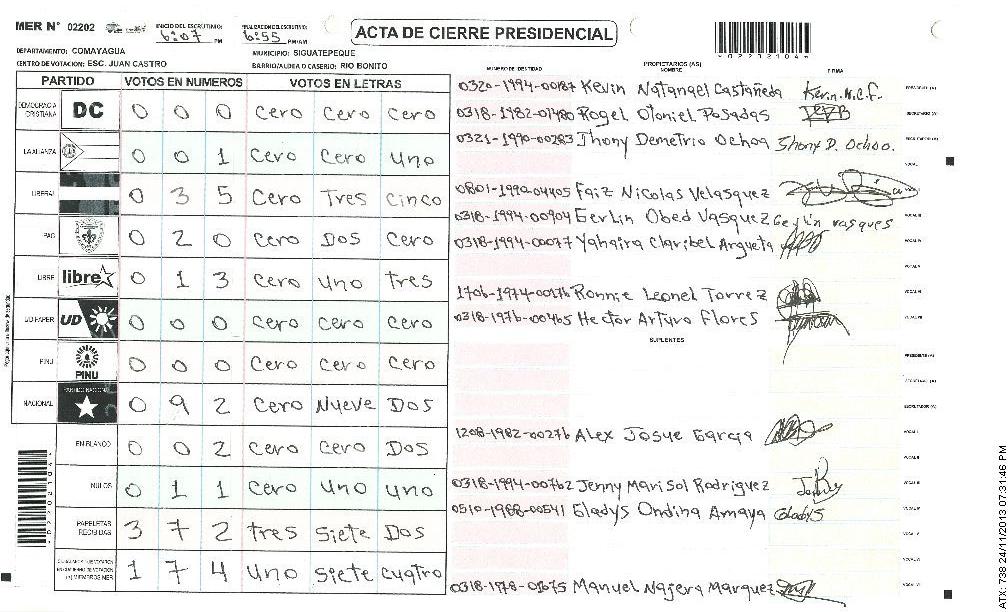 MER N° 02202
INICIO DEL ESCRUTINIO: 6:07 PM
FINALIZACION DEL ESCRUTINIO: 6:55 PM/AM
ACTA DE CIERRE PRESIDENCIAL
DEPARTAMENTO: COMAYAGUA
MUNICIPIO: SIGUATEPEQUE
CENTRO DE VOTACION: ESC. JUAN CASTRO
BARRIO/ALDEA O CASERIO: RIO BONITO
PARTIDO VOTOS EN NUMEROS VOTOS EN LETRAS
DEMOCRACIA CRISTIANA DC 0 0 0 Cero Cero Cero
LA ALIANZA 0 0 1 Cero Cero Uno
LIBERAL 0 3 5 Cero Tres Cinco
PAC 0 2 0 Cero Dos Cero
LIBRE libre 0 1 3 Cero Uno Tres
UD FAPER UD 0 0 0 Cero Cero Cero
PINU PINU 0 0 0 Cero Cero Cero
NACIONAL PARTIDO NACIONAL 0 9 2 Cero Nueve Dos
EN BLANCO 0 0 2 Cero Cero Dos
NULOS 0 1 1 Cero Uno Uno
PAPELETAS RECIBIDAS 3 7 2 Tres Siete Dos
1 7 4 Uno Siete Cuatro
NUMERO DE IDENTIDAD PROPIETARIOS (AS) NOMBRE FIRMA
0320-1994-00187 Kevin Natanael Castañeda Kevin.N.C.F.
0318-1982-01480 Rogel Otoniel Posadas
0321-1990-00283 Jhony Demetrio Ochoa Jhony D. Ochoa.
0801-1990-04405 Faiz Nicolas Velasquez
0318-1994-00904 Gerlin Obed Vasquez Gerlin vasques
0318-1994-00077 Yahaira Claribel Argueta
1706-1974-00176 Ronnie Leonel Torrez
0318-1976-00465 Hector Arturo Flores
SUPLENTES
1208-1982-00276 Alex Josue Garcia
0318-1994-00762 Jenny Marisol Rodriguez Jenny
0510-1988-00541 Gladys Ondina Amaya Gladys
0318-1978-01675 Manuel Najera Marquez
ATX: 738 24/11/2013 07:31:46 PM